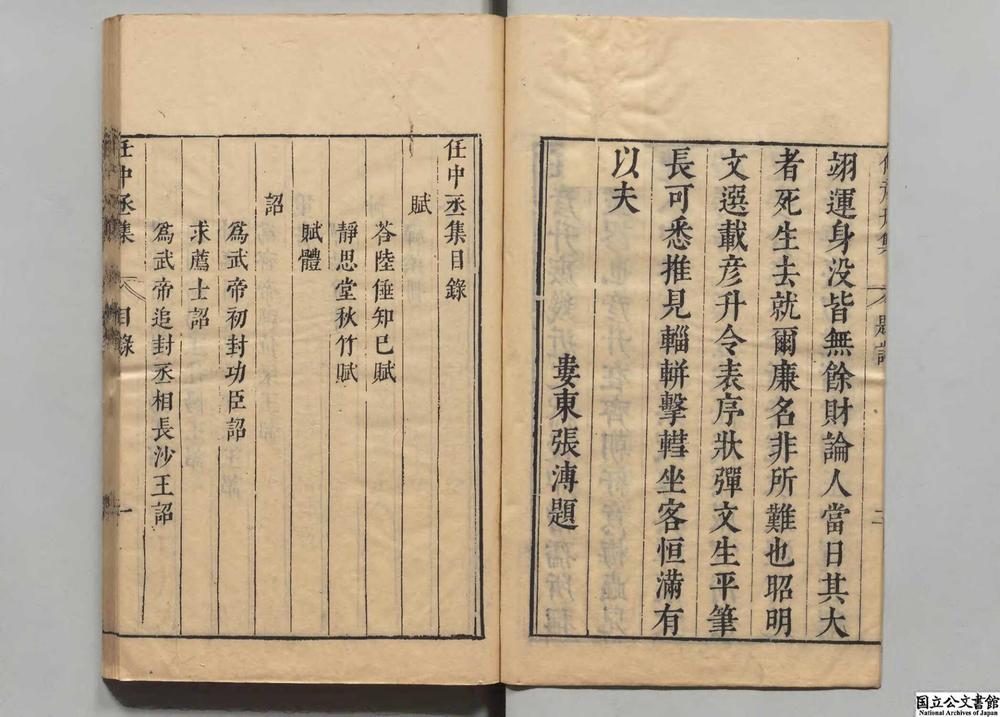 翊運身没皆無餘財論人當日其大
者死生去就爾廉名非所難也昭明
文選載彦升令表序狀彈文生平筆
長可悉推見輜軿擊轊坐客恒滿有
以夫
婁東張溥題
任中丞集目錄
賦
荅陸倕知巳賦
靜思堂秋竹賦
賦體
詔
爲武帝初封功臣詔
求薦士詔
爲武帝追封丞相長沙王詔
任中丞集 目錄 一
国立公文書館
National Archives of Japan